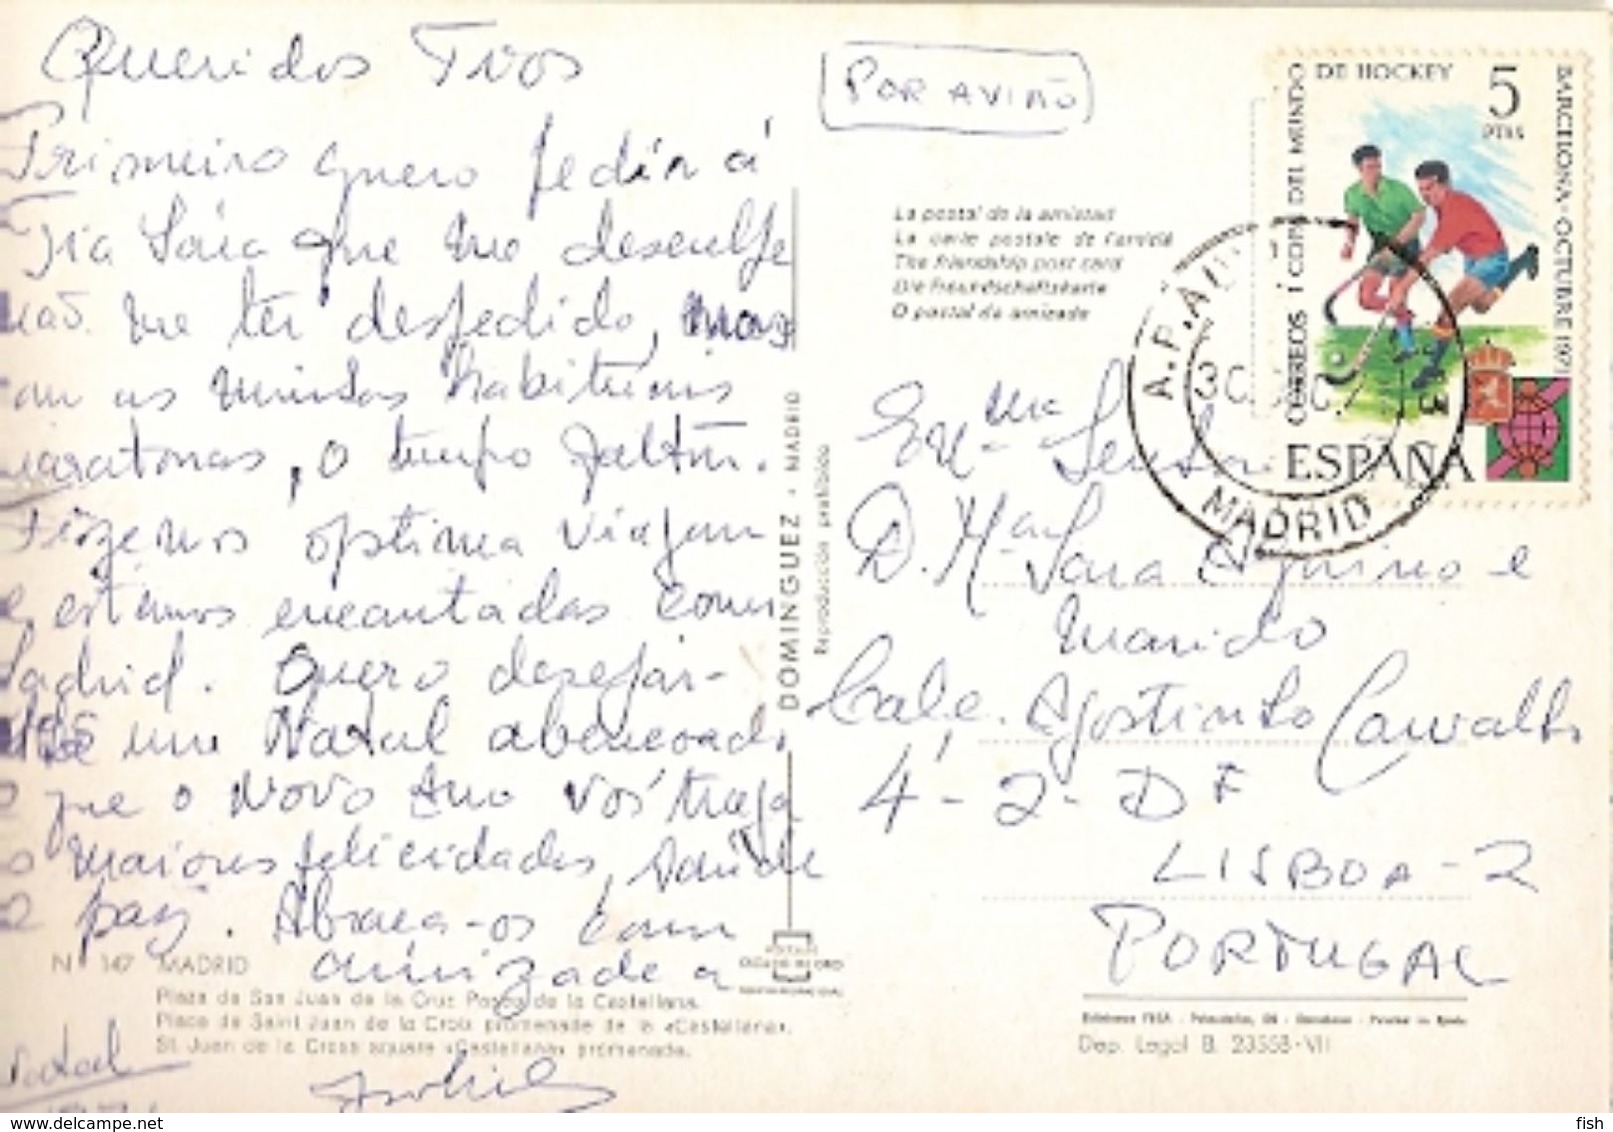 Queridos Tios
Primeiro quero pedir á
Tia Sára que me desculpe
não me ter despedido, mas
com as minhas habituais
maratonas, o tempo faltou.
Fizemos optima viagem
e estamos encantadas com
Madrid. Quero desejar-
lhes um Natal abençoado
e que o Novo Ano vos traga
as maiores felicidades, saúde
e paz. Abraça-os com
amizade a
Natal
1971
POR AVIÃO
CORREOS I COPA DEL MUNDO
DE HOCKEY
5
PTAS
BARCELONA - OCTUBRE 1971
ESPAÑA
A.P.A
MADRID
La postal de la amistad
La carte postale de l'amitié
The friendship post card
Die Freundschaftskarte
O postal da amizade
DOMINGUEZ - MADRID
Reproducción prohibida
Exma Senhora
D. Mª Sara Aquino e
marido
Calc. Agostinho Carvalho
4 - 2 - D F
LISBOA - 2
PORTUGAL
N 147 MADRID
Plaza de San Juan de la Cruz Paseo de la Castellana.
Place de Saint Juan de la Croix promenade de la «Castellana».
St. Juan de la Cross square «Castellana» promenade.
Dep. Legal B. 23558-VII
fish
www.delcampe.net